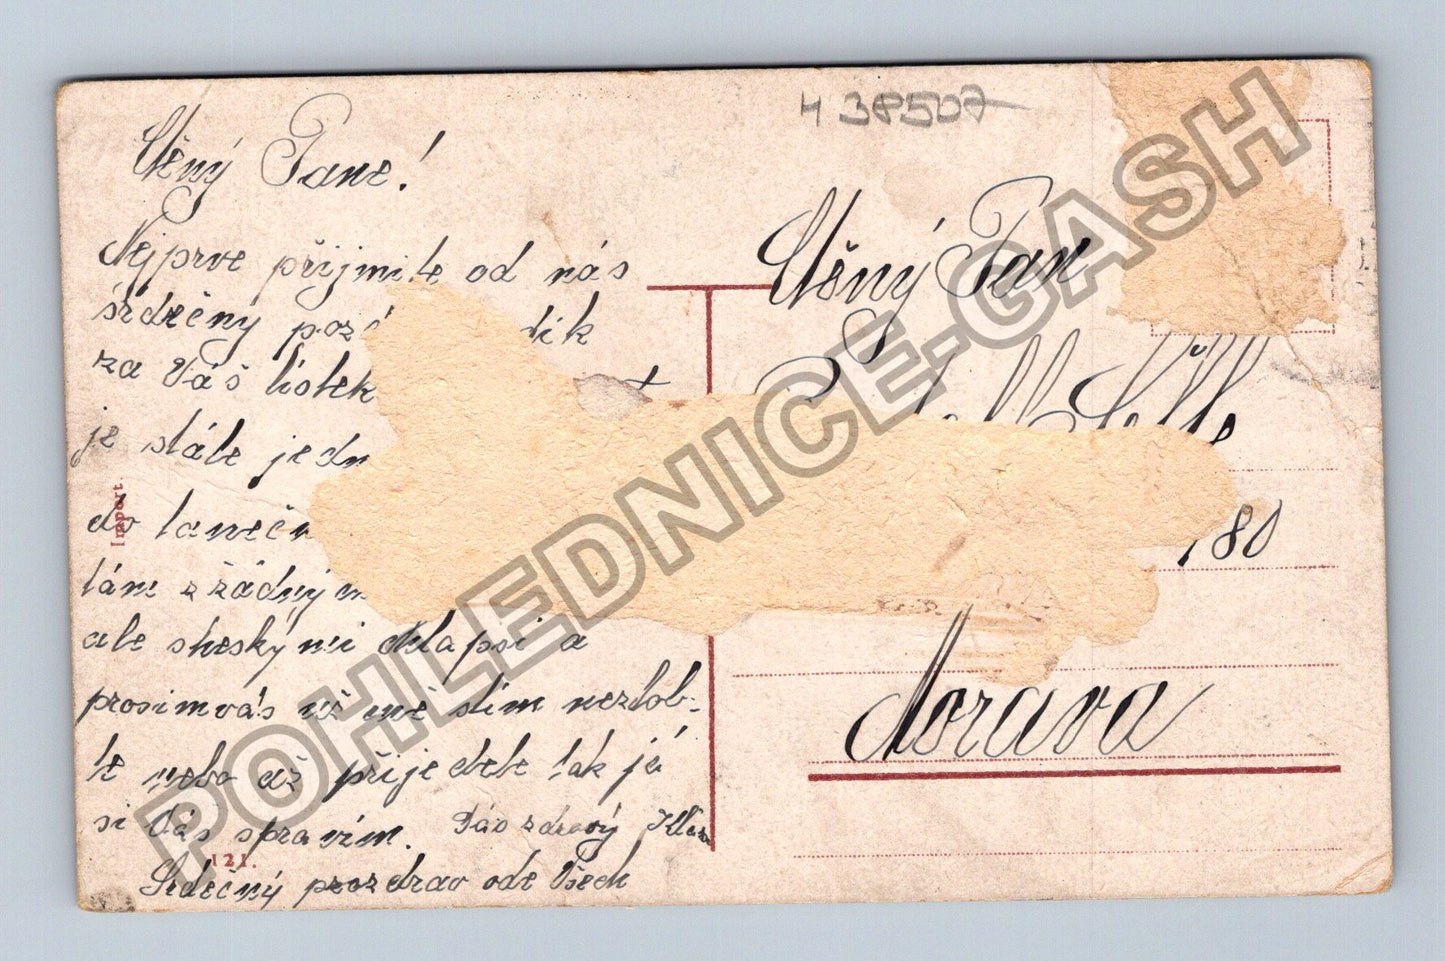 H 38507
Ctěný Pane!
Nejprve přijměte od nás
srdečný poz dik
za Váš lístek
je stále jedn
do tanečn
tám z žádným
ale s heskými chlapsi a
prosimvás už mě stím nezlob-
te nebo až přijedete tak já
si Vás spravím. Vás zdravý
Srdečný pozdrav ode Všech
Import.
121.
Ctěný Pan
180
Morava
POHLEDNICE-GASH